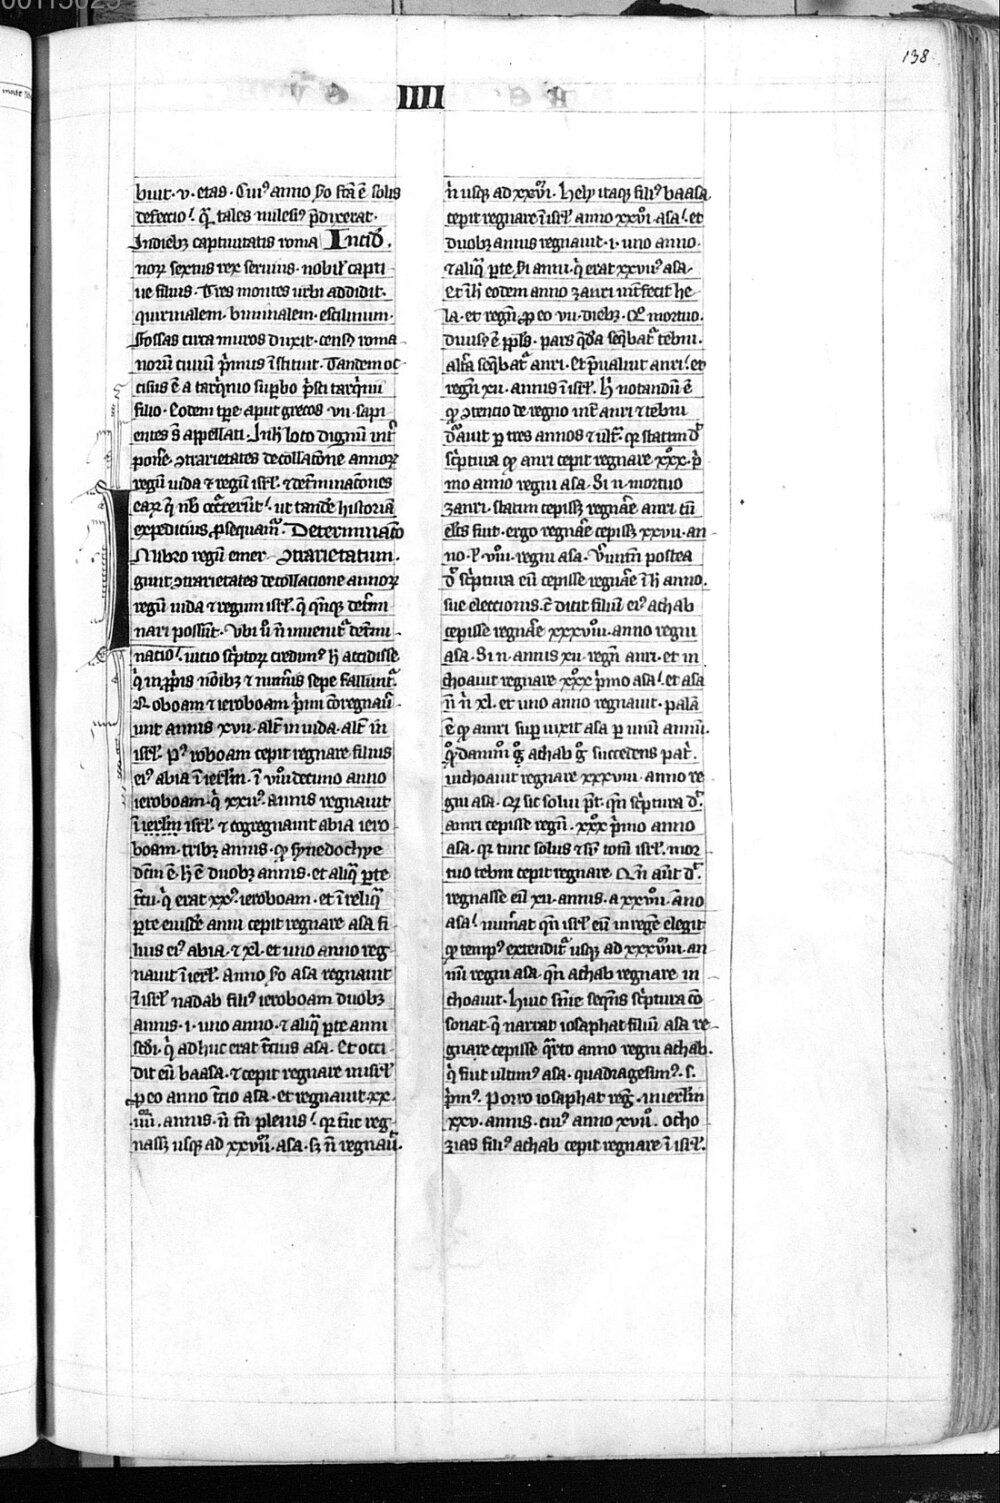 138
IIII
buit · v · etas · Cui⁹ anno s̄o fc̄a ē solis
defectio · q̄ tales milesi⁹ p̄dixerat ·
In dieb₃ captiuitatis roma Incid̄ .
norꝝ sextus rex seruius · nobil̓ capti
ue filius · Tres montes urbi addidit ·
quirinalem · biminalem · esc̓ilinum ·
Fossas circa muros duxit · censū roma
norū ciuiū p̓mus īstituit · Tandem oc
cisus ē a tarq̓nio sup̄bo p̓sci tarq̓nii
filio · Eodem tp̄e aput grecos vii · sapi
entes s̄t appellati · In h̄ loco dignū int̓
pone᷑ ꝯtrarietates de collac̄one annorꝝ
regū iuda ⁊ regū isrl̄ · ⁊ det̓minac̄ones
earꝝ ut tandē historiā
expeditius ꝑsequam̄ · Determinac̄o
N libro regū emer ꝯtrarietatum .
gunt ꝯtrarietates de collacione annorꝝ
regū iuda ⁊ regum isrl̄ · q̄ q̄nq₃ det̓mi
nari possūt · Vbi ū n̄ inuenit̄ det̓mi
natio · uicio sc̓ptorꝝ credim⁹ h̄ accidisse
q̓ in ꝓp̓is noib₃ ⁊ nūis sepe fallunt̄
Roboam ⁊ ieroboam p̓mi c̄oregnau̓
unt annis xvii · alt̓ in iuda · alt̓ in
isrl̄ · p⁹ roboam cepit regnare filius
ei⁹ abia ī ierl̄m · ī uiii decimo anno
ieroboam · q̓ xxii⁹ · annis regnauit
ī ierl̄m isrl̄ · ⁊ ꝯgregnauit abia iero
boam · trib₃ annis · ꝙ synedochye
dc̄m ē · h̄ ē duob₃ annis · et aliq̄ p̱te
tc̄ii · q̓ erat xx⁹ · ieroboam · et ī reliq̄
p̱te eiusdē anni cepit regnare asa fi
lius ei⁹ abia · ⁊ xl · et uno anno reg
nauit ī ierl̄ · Anno s̄o asa regnauit
ī isrl̄ nadab fili⁹ ieroboam duob₃
annis · i · uno anno · ⁊ aliq̄ p̱te anni
sc̄di · q̓ adhuc erat t̓cius asa · Et occi
dit eū baasa · ⁊ cepit regnare in isrl̄
ꝓ eo anno t̓cio asa · et regnauit · xx ·
iiii · annis · n̄ tn̄ plenis · q̓ tūc reg
nass₃ usq₃ ad xxvii · asa · s₃ n̄ regnau̓ .
n̓ usq₃ ad xxvi · Hely itaq₃ fili⁹ baasa
cepit regnare ī isrl̄ anno xxvi · asa · et
duob₃ annis regnauit · i · uno anno ·
⁊ aliq̄ p̱te s̄i anni · q̓ erat xxvii⁹ asa ·
Et īh̄ eodem anno zanri int̓fecit he
la · et regn̄ ꝓ eo vii · dieb₃ · Q̄ mortuo ·
diuis₉ ē ppl̄s · pars q̄da seq̄bat̄ tebni ·
alt̓a seq̄bat̄ anri · Et p̄ualuit anri · et
regn̄ xii · annis ī isrl̄ · H̄ notandū ē
ꝙ ꝯtencio de regno int̓ anri ⁊ tebni
d᷑auit p̱ tres annos ⁊ ult̓ · q̓ statim d᷑
sc̓ptura ꝙ anri cepit regnare xxx · p̓
mo anno regni asa · Si n̄ mortuo
zanri · statim cepiss₃ regnāe anri tū
elc̄s fuit · ergo regnāe cepiss₃ xxvii · an
no · ł viii · regni asa · V̓iunt̄n postea
d᷑ sc̓ptura eū cepisse regnāe ī h̄ anno .
sue eleccionis · ē dicit filiū ei⁹ achab
cepisse regnāe xxxviii · anno regni
asa · Si n̄ annis xii · regn̄ anri · et in
choauit regnare xxx p̓mo asa · et asa
n̄ n̓ xl · et uno anno regnauit · palā
ē ꝙ amri sup̱ uixit asa p̱ unū annū .
achab succedens pat̓ ·
inchoauit regnare xxxviii · anno re
gni asa · Qꝝ sic solui p̄t · q̄n sc̓ptura d᷑ .
amri cepisse regn̄ · xxx p̓mo anno
asa · q̓ tunc solus ⁊ sr̄ totū isrl̄ · mor
tuo tebni cepit regnare · Q̄n aūt d᷑ .
regnasse eū xii · annis · a xxviii · āno
asa · num̓at q̄n isrl̄ eū in regē elegit
ꝙ temp⁹ extendit̄ usq₃ ad xxxviii · an
nū regni asa · q̄n achab regnare in
choauit · Huic sn̄ie seq̄ns sc̓ptura c̄o
sonat · q̄ narrat iosaphat filiū asa re
gnare cepisse q̄rto anno regni achab .
q̓ fuit ultim⁹ asa · quadragesim⁹ · s .
p̓m⁹ · Porro iosaphat reg̓ · in ierl̄m
xxv · annis · cui⁹ anno xvii⁰ · ocho
zias fili⁹ achab cepit regnare ī isrl̄ .